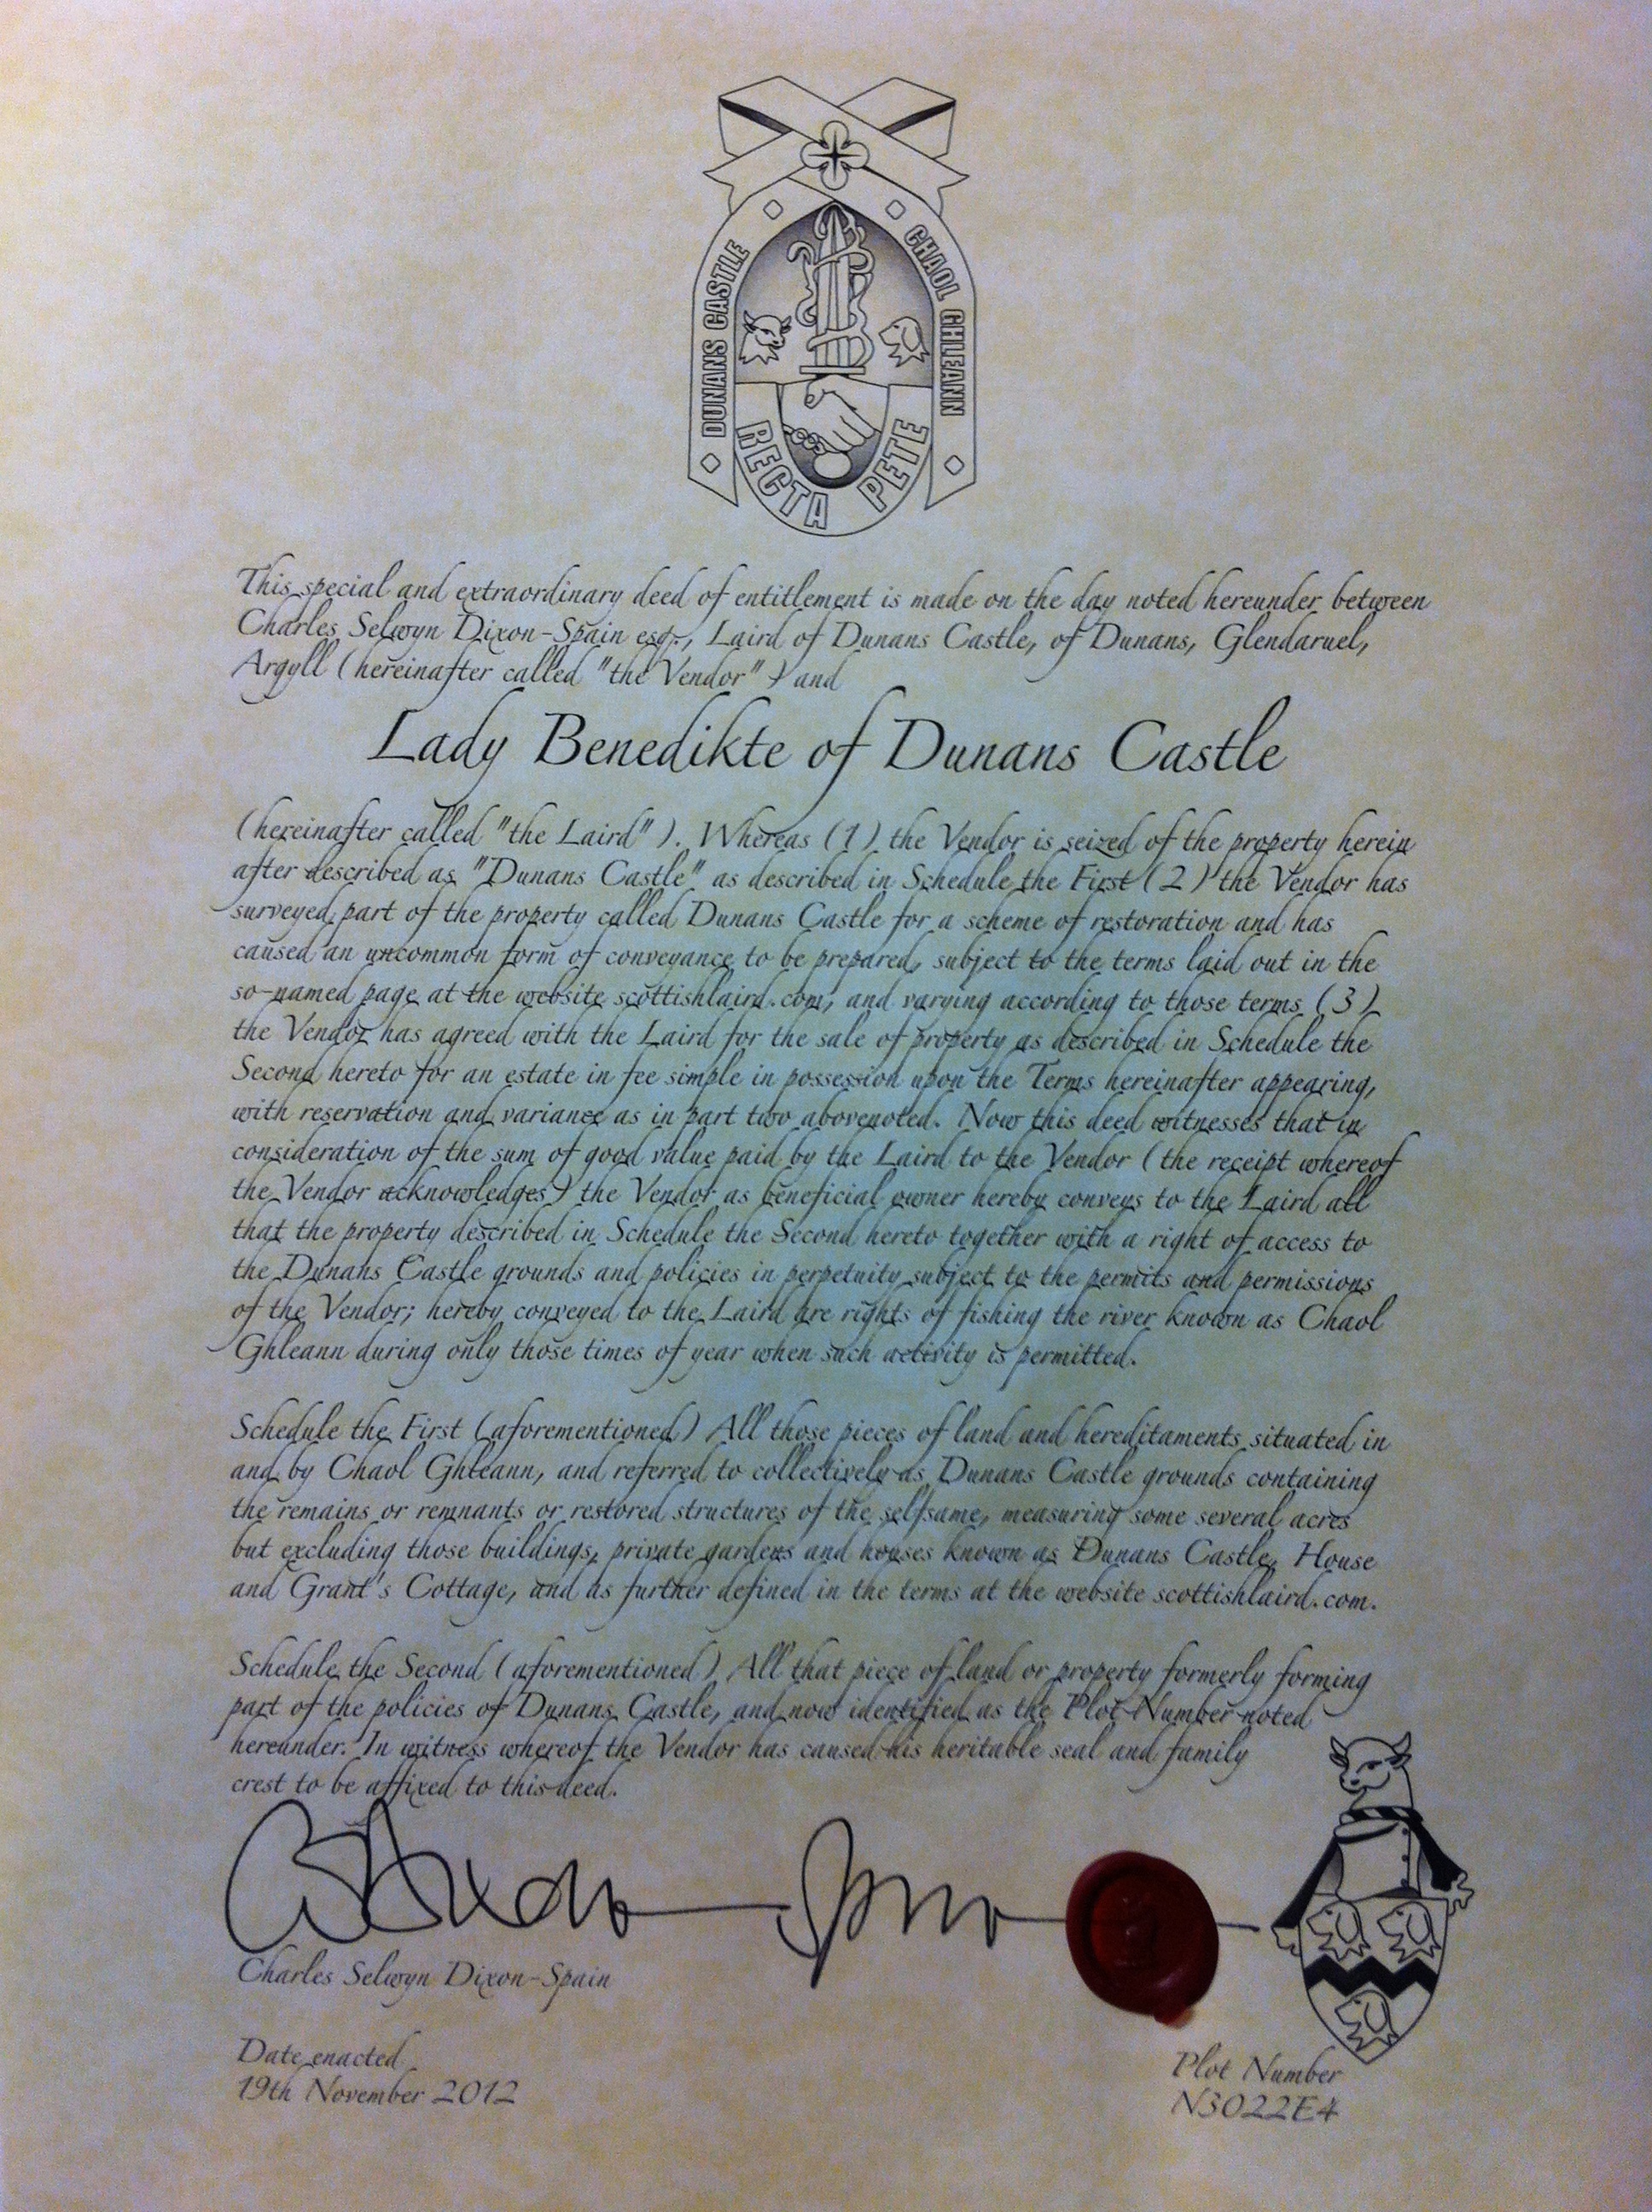 DUNANS CASTLE
CHAOL GHLEANN
RECTA PETE
This special and extraordinary deed of entitlement is made on the day noted hereunder between
Charles Selwyn Dixon-Spain esq., Laird of Dunans Castle, of Dunans, Glendaruel,
Argyll (hereinafter called "the Vendor") and
Lady Benedikte of Dunans Castle
(hereinafter called "the Laird"). Whereas (1) the Vendor is seized of the property herein
after described as "Dunans Castle" as described in Schedule the First (2) the Vendor has
surveyed part of the property called Dunans Castle for a scheme of restoration and has
caused an uncommon form of conveyance to be prepared, subject to the terms laid out in the
so-named page at the website scottishlaird.com, and varying according to those terms (3)
the Vendor has agreed with the Laird for the sale of property as described in Schedule the
Second hereto for an estate in fee simple in possession upon the Terms hereinafter appearing,
with reservation and variance as in part two abovenoted. Now this deed witnesses that in
consideration of the sum of good value paid by the Laird to the Vendor (the receipt whereof
the Vendor acknowledges) the Vendor as beneficial owner hereby conveys to the Laird all
that the property described in Schedule the Second hereto together with a right of access to
the Dunans Castle grounds and policies in perpetuity subject to the permits and permissions
of the Vendor; hereby conveyed to the Laird are rights of fishing the river known as Chaol
Ghleann during only those times of year when such activity is permitted.
Schedule the First (aforementioned) All those pieces of land and hereditaments situated in
and by Chaol Ghleann, and referred to collectively as Dunans Castle grounds containing
the remains or remnants or restored structures of the selfsame, measuring some several acres
but excluding those buildings, private gardens and houses known as Dunans Castle, House
and Grant's Cottage, and as further defined in the terms at the website scottishlaird.com.
Schedule the Second (aforementioned) All that piece of land or property formerly forming
part of the policies of Dunans Castle, and now identified as the Plot Number noted
hereunder. In witness whereof the Vendor has caused his heritable seal and family
crest to be affixed to this deed.
Charles Selwyn Dixon-Spain
Date enacted
19th November 2012
Plot Number
N3022E4